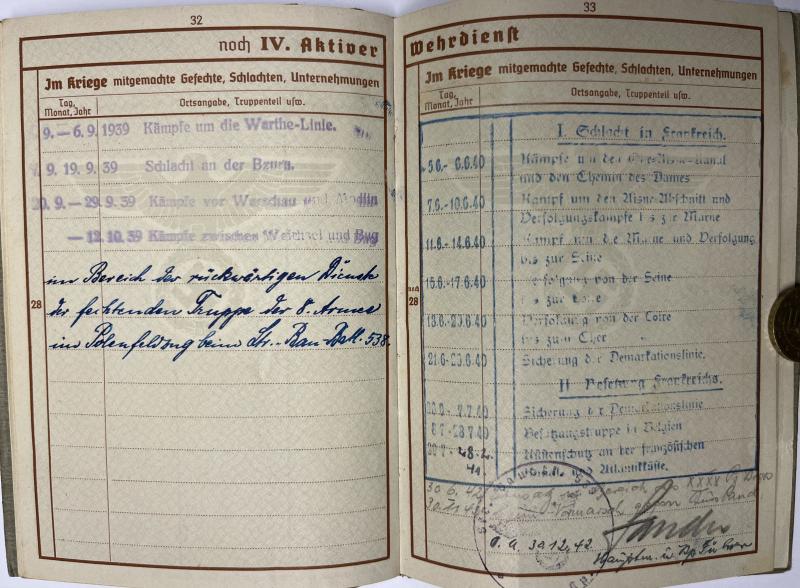 32
noch IV. Aktiver
Im Kriege mitgemachte Gefechte, Schlachten, Unternehmungen
Tag, Monat, Jahr
Ortsangabe, Truppenteil usw.
9.–6.9.1939 Kämpfe um die Warthe-Linie.
9. 19.9.39 Schlacht an der Bzura.
20.9.–29.9.39 Kämpfe vor Warschau und Modlin
–12.10.39 Kämpfe zwischen Weichsel und Bug
28
im Bereich der rückwärtigen Dienste
der fechtenden Truppe der 8. Armee
im Polenfeldzug beim Str.-Bau-Batl. 538.
33
Wehrdienst
Im Kriege mitgemachte Gefechte, Schlachten, Unternehmungen
Tag, Monat, Jahr
Ortsangabe, Truppenteil usw.
I. Schlacht in Frankreich.
5.6.-6.6.40 Kämpfe um den Oise-Aisne-Kanal
und den Chemin des Dames
7.6.-10.6.40 Kampf um den Aisne-Abschnitt und
Verfolgungskämpfe bis zur Marne
11.6.-14.6.40 Kampf um die Marne und Verfolgung
bis zur Seine
15.6.-17.6.40 Verfolgung von der Seine
bis zur Loire
noch 28
18.6.-20.6.40 Verfolgung von der Loire
bis zum Cher
21.6.- Sicherung der Demarkationslinie.
II Besetzung Frankreichs.
7.7.40 Sicherung der Demarkationslinie
8.7.-28.7.40 Besatzungstruppe in Belgien
28.2. Küstenschutz an der französischen
41. und Atlantikküste.
30.6.42 Einsatz im Bereich des XXXX Pz
Vormarsch gegen Russland
30.12.42
Hauptm. u.